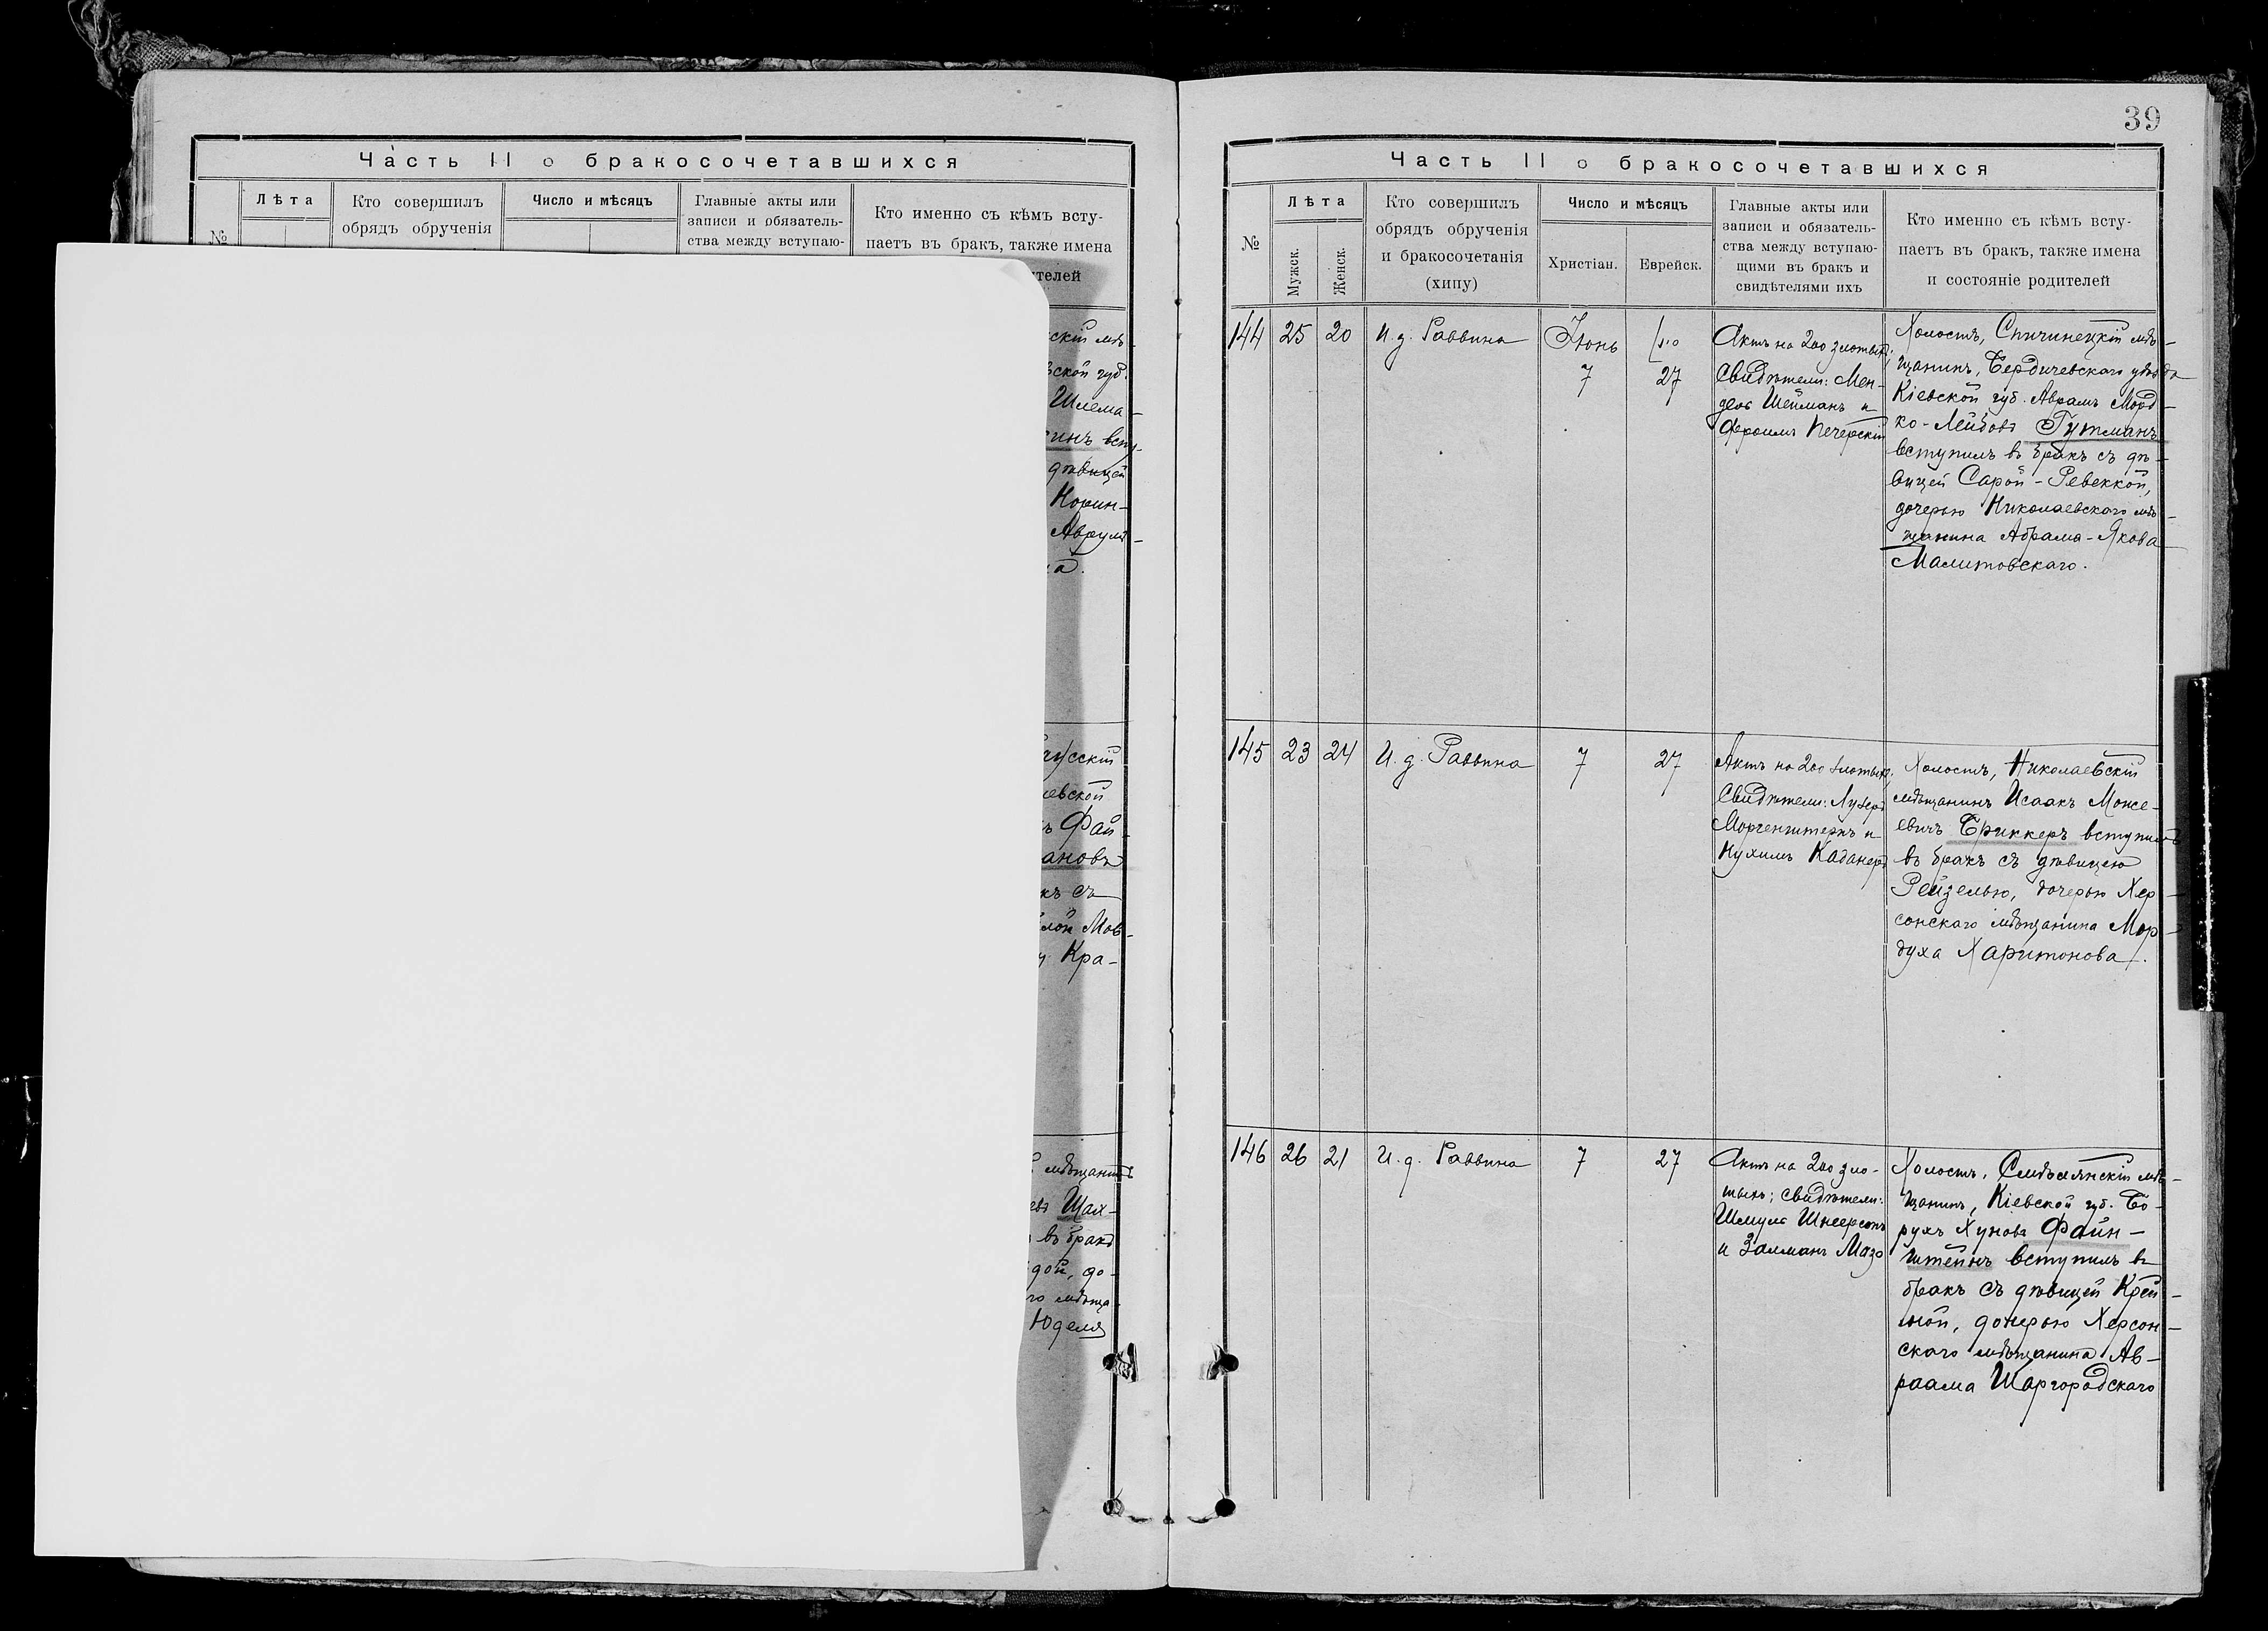 Часть II о бракосочетавшихся
№
Лѣта
Кто совершилъ
обрядъ обрученія
Число и мѣсяцъ
Главные акты или
записи и обязатель-
ства между вступаю-
Кто именно съ кѣмъ всту-
паетъ въ бракъ, также имена
ской губ.
Шлема-
дѣвицей
Аврум-
Фай-
ановъ
къ съ
Мов-
Кра-
мѣщанинъ
Шах-
въ бракъ
дой, до-
го мѣща-
Юделя
39
Часть II о бракосочетавшихся
№
Лѣта
Мужск.
Женск.
Кто совершилъ
обрядъ обрученія
и бракосочетанія
(хипу)
Число и мѣсяцъ
Христіан.
Еврейск.
Главные акты или
записи и обязатель-
ства между вступаю-
щими въ бракъ и
свидѣтелями ихъ
Кто именно съ кѣмъ всту-
паетъ въ бракъ, также имена
и состояніе родителей
144 25 20 И. д. Раввина Іюнь
7 27
Актъ на 200 злотыхъ;
Свидѣтели: Мен-
дель Шейманъ и
Фроимъ Печерскій
Холостъ, Спичинецкій мѣ-
щанинъ, Бердичевскаго уѣзда
Кіевской губ. Аврамъ Морд-
ко-Лейбовъ Гутманъ
вступилъ въ бракъ съ дѣ-
вицей Сарой-Ревеккой,
дочерью Николаевскаго мѣ-
щанина Абрама-Якова
Малитовскаго.
145 23 24 И. д. Раввина 7 27
Актъ на 200 злотыхъ.
Свидѣтели: Лузеръ
Моргенштернъ и
Нухимъ Каданеръ
Холостъ, Николаевскій
мѣщанинъ Исаакъ Моисе-
евичъ Бриккеръ вступилъ
въ бракъ съ дѣвицею
Рейзелью, дочерью Хер-
сонскаго мѣщанина Мор-
духа Харитонова.
146 26 21 И. д. Раввина 7 27
Актъ на 200 зло-
тыхъ; свидѣтели:
Шмуль Шнеерсонъ
и Залманъ Мазо
Холостъ, Смѣлянскій мѣ-
щанинъ, Кіевской губ. Бо-
рухъ Хуновъ Файн-
штейнъ вступилъ въ
бракъ съ дѣвицей Крей-
ной, дочерью Херсон-
скаго мѣщанина Ав-
раама Шаргородскаго